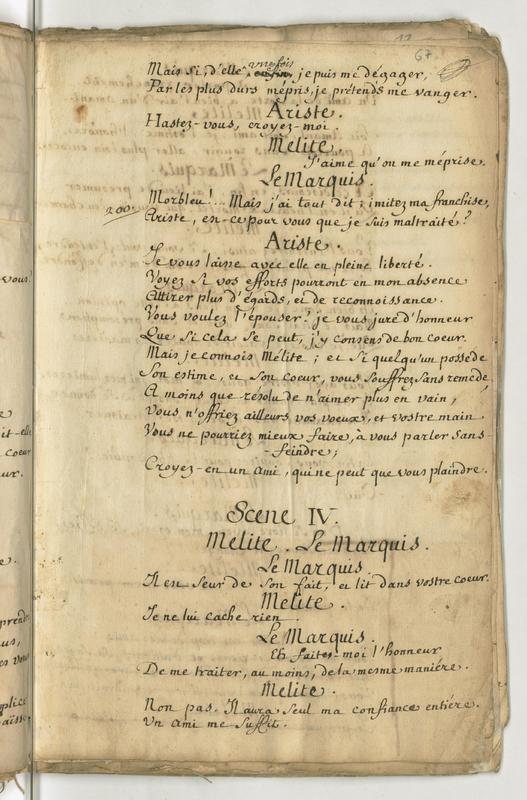 67.
une fois
Mais si, d'elle, enfin, je puis me dégager,
Par les plus durs mépris, je prétends me vanger.
Ariste.
Hastez-vous, croyez-moi.
Melite.
J'aime qu'on me méprise.
Le Marquis.
Morbleu!... Mais j'ai tout dit; imitez ma franchise,
200.
Ariste, est-ce pour vous que je suis maltraité?
Ariste.
Je vous laisse avec elle en pleine liberté.
Voyez si vos efforts pourront en mon absence
Attirer plus d'égards, et de reconnoissance.
Vous voulez l'épouser? je vous jure d'honneur
Que si cela se peut, j'y consens de bon coeur.
Mais je connois Mélite; et si quelqu'un posséde
Son estime, et son coeur, vous souffrez sans reméde,
A moins que résolu de n'aimer plus en vain,
Vous n'offriez ailleurs vos voeux, et vostre main
Vous ne pourriez mieux faire, à vous parler sans
-feindre;
Croyez-en un Ami, qui ne peut que vous plaindre.
Scene IV.
Melite. Le Marquis.
Le Marquis.
Il est seur de son fait, et lit dans vostre coeur.
Melite.
Je ne lui cache rien.
Le Marquis.
Eh faites-moi l'honneur
De me traiter, au moins, de la mesme maniére.
Melite.
Non pas. Il aura seul ma confiance entiére.
Un Ami me suffit.
vous!
it-elle
coeur
prend
us,